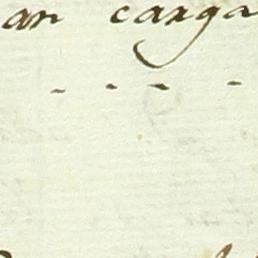 an carga
- - - -